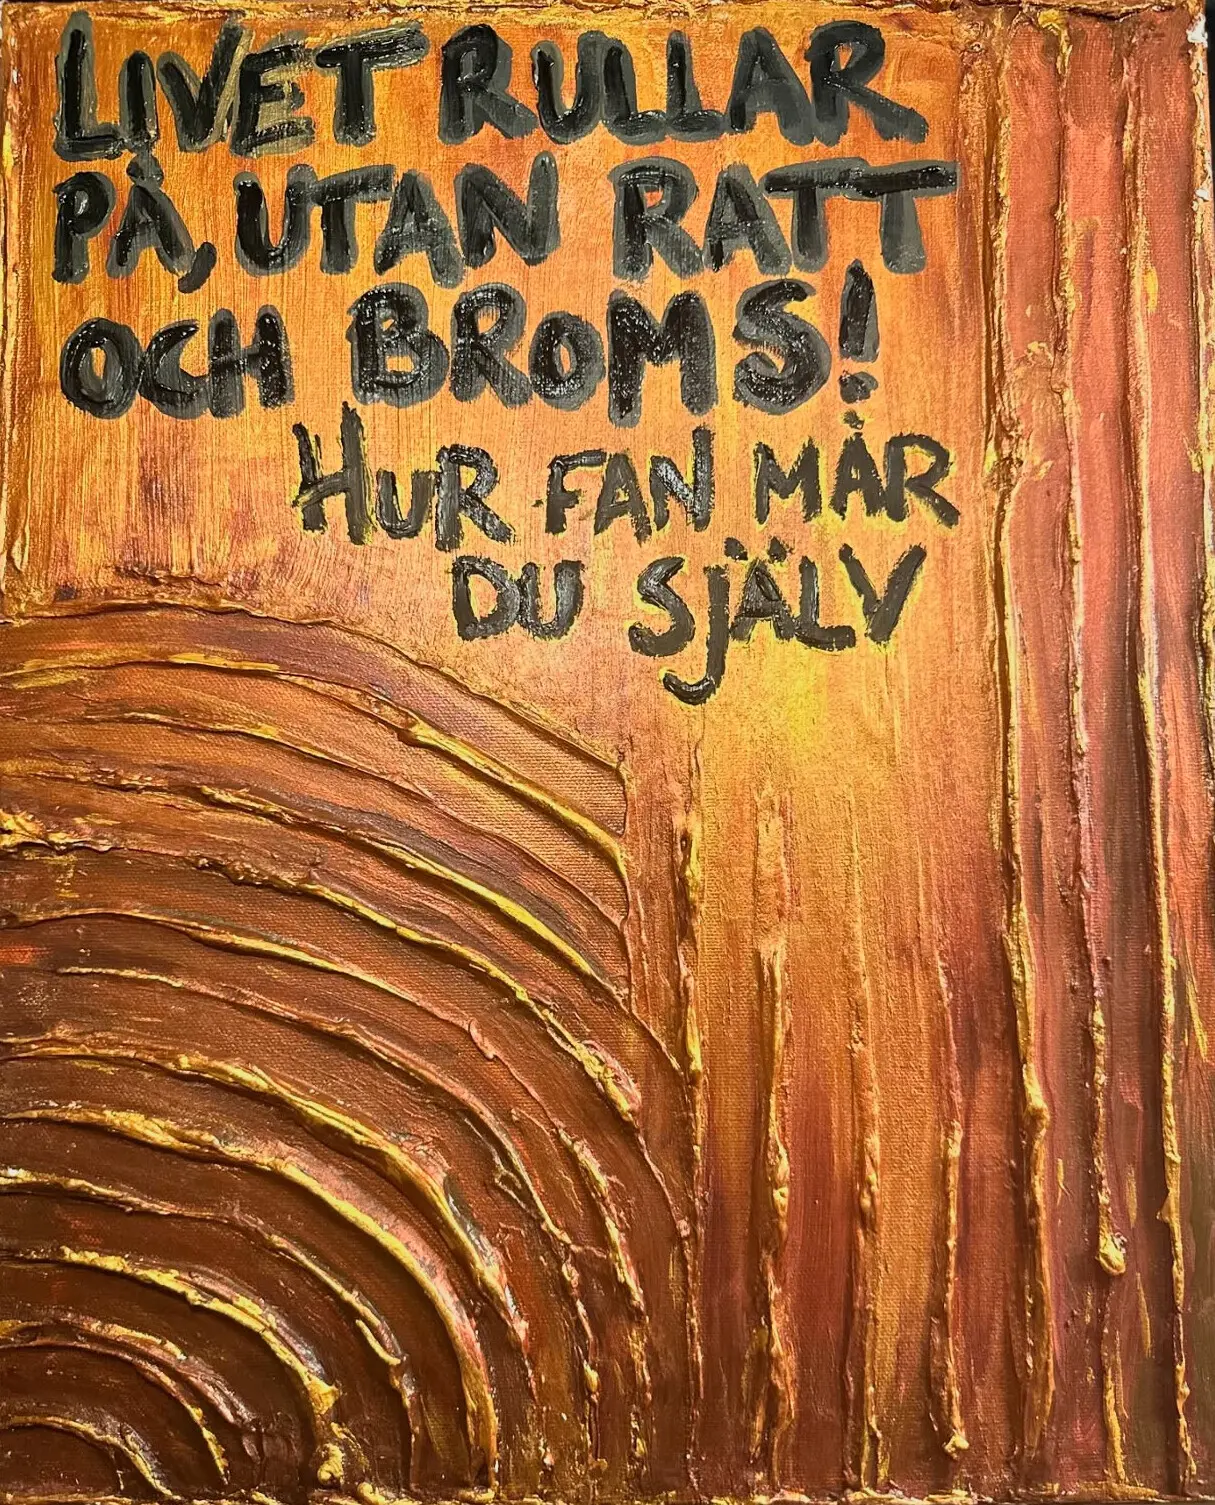 LIVET RULLAR
PÅ, UTAN RATT
OCH BROMS!
HUR FAN MÅR
DU SJÄLV